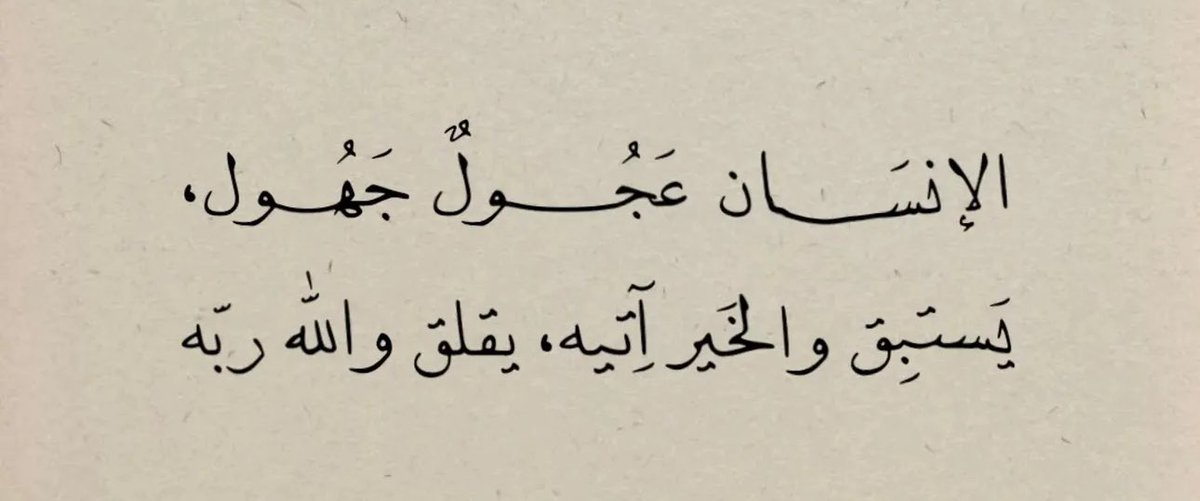 الإنسَان عَجُولٌ جَهُول،
يَستبِق والخَير آتِيه، يقلق والله ربّه